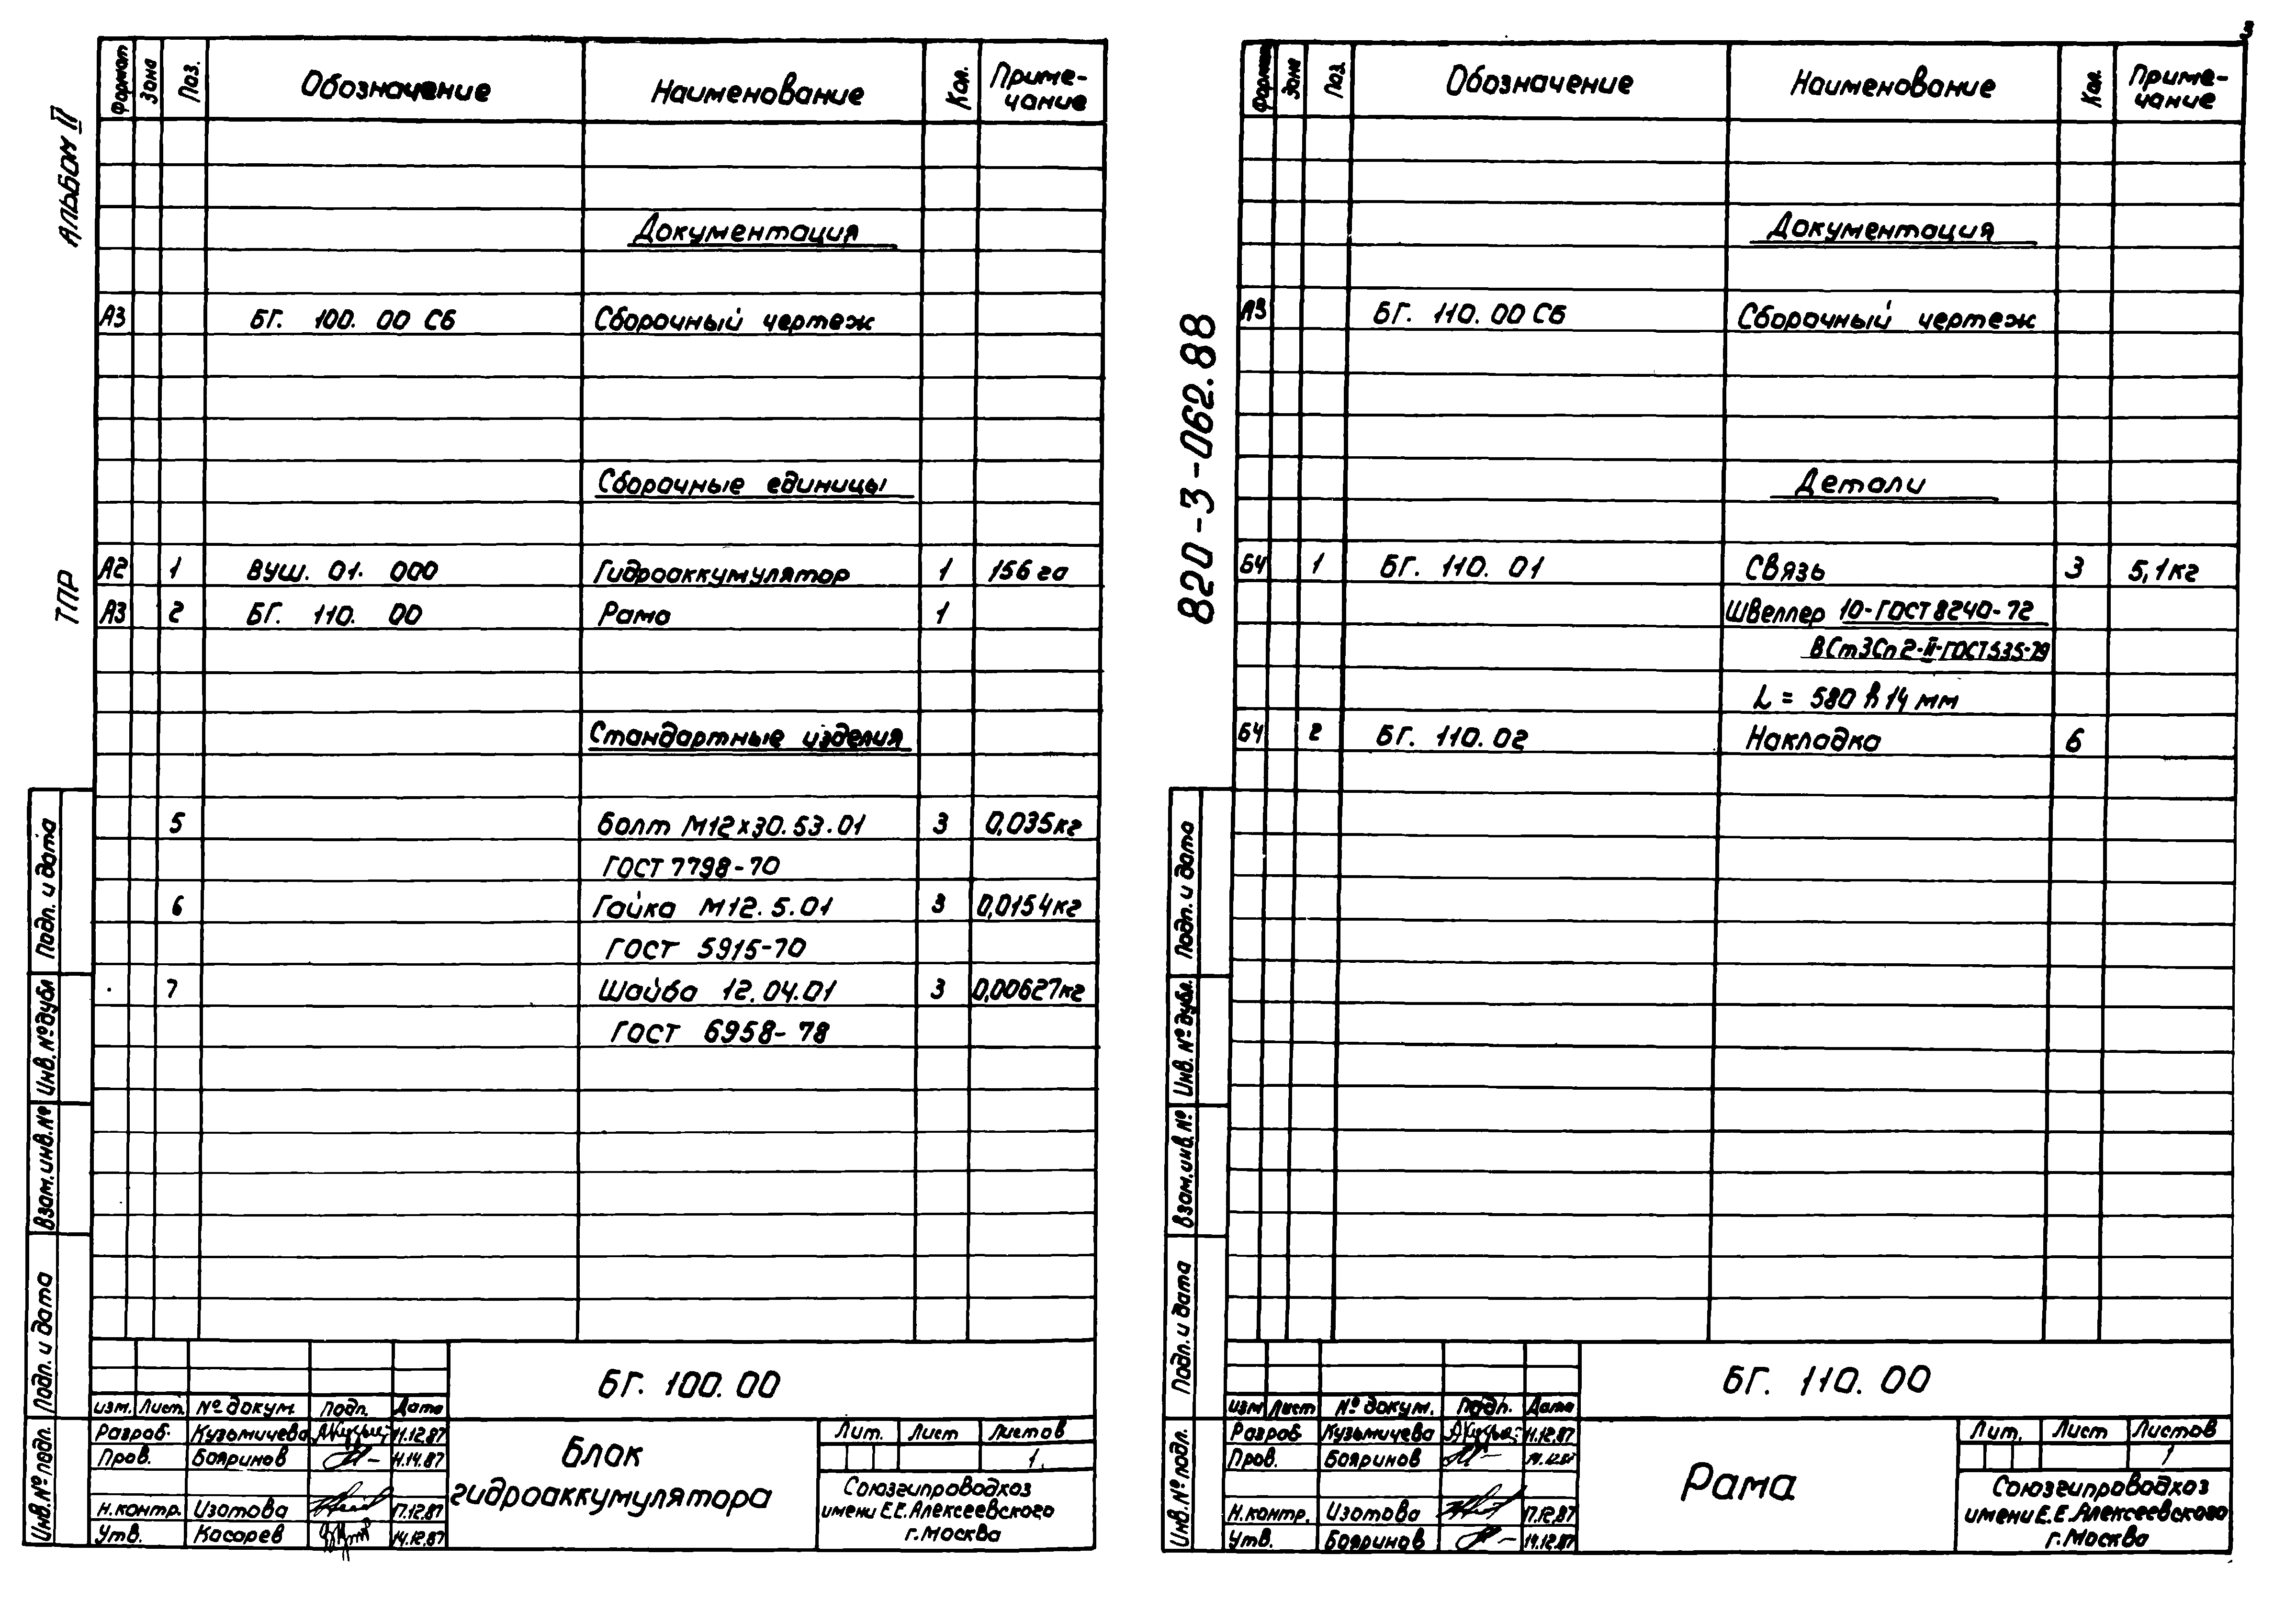 Альбом II
ТПР
Формат Зона Поз. Обозначение Наименование Кол. Приме-
чание
Документация
А3 БГ. 100. 00 СБ Сборочный чертеж
Сборочные единицы
А2 1 ВУШ. 01. 000 Гидроаккумулятор 1 156 га
А3 2 БГ. 110. 00 Рама 1
Стандартные изделия
5 Болт М12х30.53.01 3 0,035кг
ГОСТ 7798-70
6 Гайка М12.5.01 3 0,0154кг
ГОСТ 5915-70
7 Шайба 12.04.01 3 0,00627кг
ГОСТ 6958-78
Подп. и дата
Инв. № дубл
Взам. инв. №
Подп. и дата
Инв. № подл.
БГ. 100. 00
изм. Лист. № докум. Подп. Дата
Разраб. Кузьмичева 11.12.87
Пров. Бояринов 14.14.87
Н.контр. Изотова 17.12.87
Утв. Косарев 14.12.87
Блок
гидроаккумулятора
Лит. Лист Листов
1.
Союзгипроводхоз
имени Е.Е.Алексеевского
г.Москва
820-3-062.88
Формат Зона Поз. Обозначение Наименование Кол. Приме-
чание
Документация
А3 БГ. 110. 00 СБ Сборочный чертеж
Детали
БЧ 1 БГ. 110. 01 Связь 3 5,1кг
Швеллер 10-ГОСТ 8240-72
ВСт3Сп2-II-ГОСТ535-79
L = 580 h 14 мм
БЧ 2 БГ. 110. 02 Накладка 6
Подп. и дата
Инв. № дубл.
Взам. инв. №
Подп. и дата
Инв. № подл.
БГ. 110. 00
изм Лист № докум. Подп. Дата
Разраб Кузьмичева 11.12.87
Пров. Бояринов
Н.контр. Изотова 17.12.87
Утв. Бояринов 14.12.87
Рама
Лит. Лист Листов
1
Союзгипроводхоз
имени Е.Е.Алексеевского
г.Москва